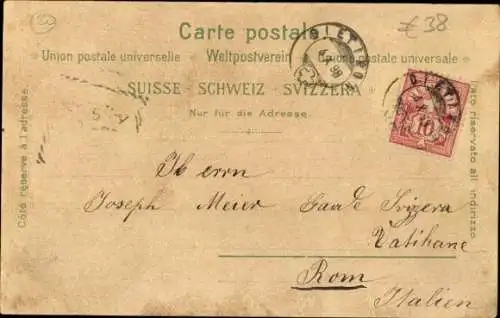 € 38
Carte postale.
Union postale universelle. Weltpostverein. Unione postale universale
SUISSE - SCHWEIZ - SVIZZERA
Nur für die Adresse.
Côté réservé à l'adresse.
Lato riservato all indirizzo
DIETIKON
DIETIKON
10
Herrn
Joseph Meier Guade Svizera
Vatikane
Rom
Italien